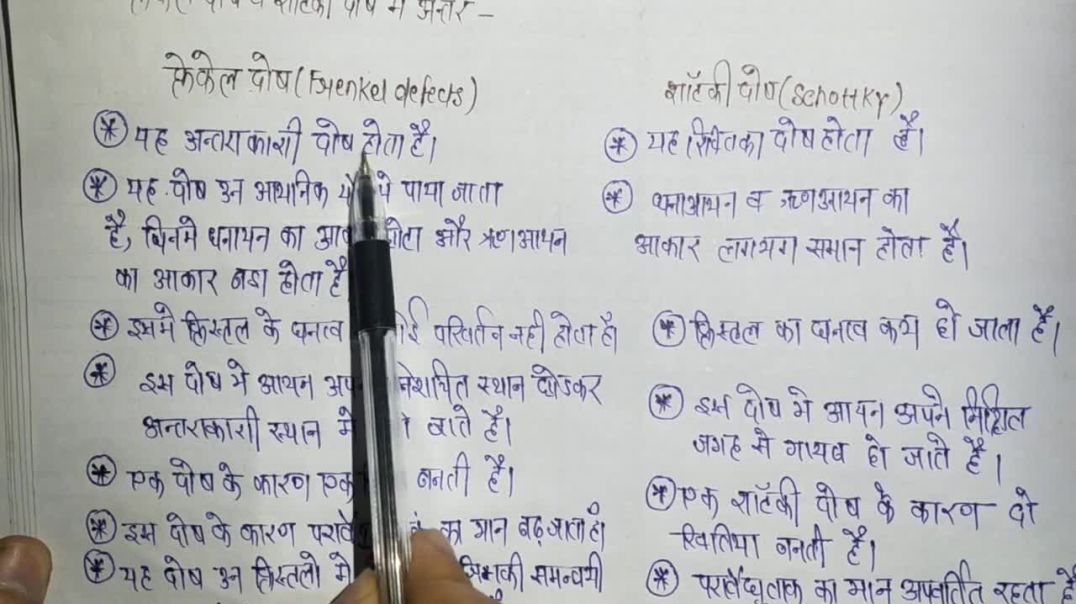 फ्रेंकेल दोष व शॉटकी दोष में अन्तर -
फ्रेंकेल दोष (Frenkel defects)
* यह अन्तराकाशी दोष होता है।
* यह दोष उन आयनिक पाया जाता
है, जिनमे धनायन का होता और ऋणआयन
का आकार बडा होता है
* इसमे क्रिस्टल के घनत्व परिवर्तन नही होता है।
* इस दोष मे आयन स्थान छोडकर
अन्तराकाशी स्थान मे जाते है।
* एक दोष के कारण एक बनती है।
* इस दोष के कारण का मान बढ़ जाता है।
* यह दोष उन क्रिस्टलो मे जिनकी समन्वयी
शॉटकी दोष (Schottky)
* यह रिक्तिका दोष होता है।
* धनाआयन व ऋणआयन का
आकार लगभग समान होता है।
* क्रिस्टल का घनत्व कम हो जाता है।
* इस दोष मे आयन अपने निश्चित
जगह से गायब हो जाते है।
* एक शॉटकी दोष के कारण दो
रिक्तिया बनती है।
* परावैद्युतांक का मान अपवर्तित रहता है